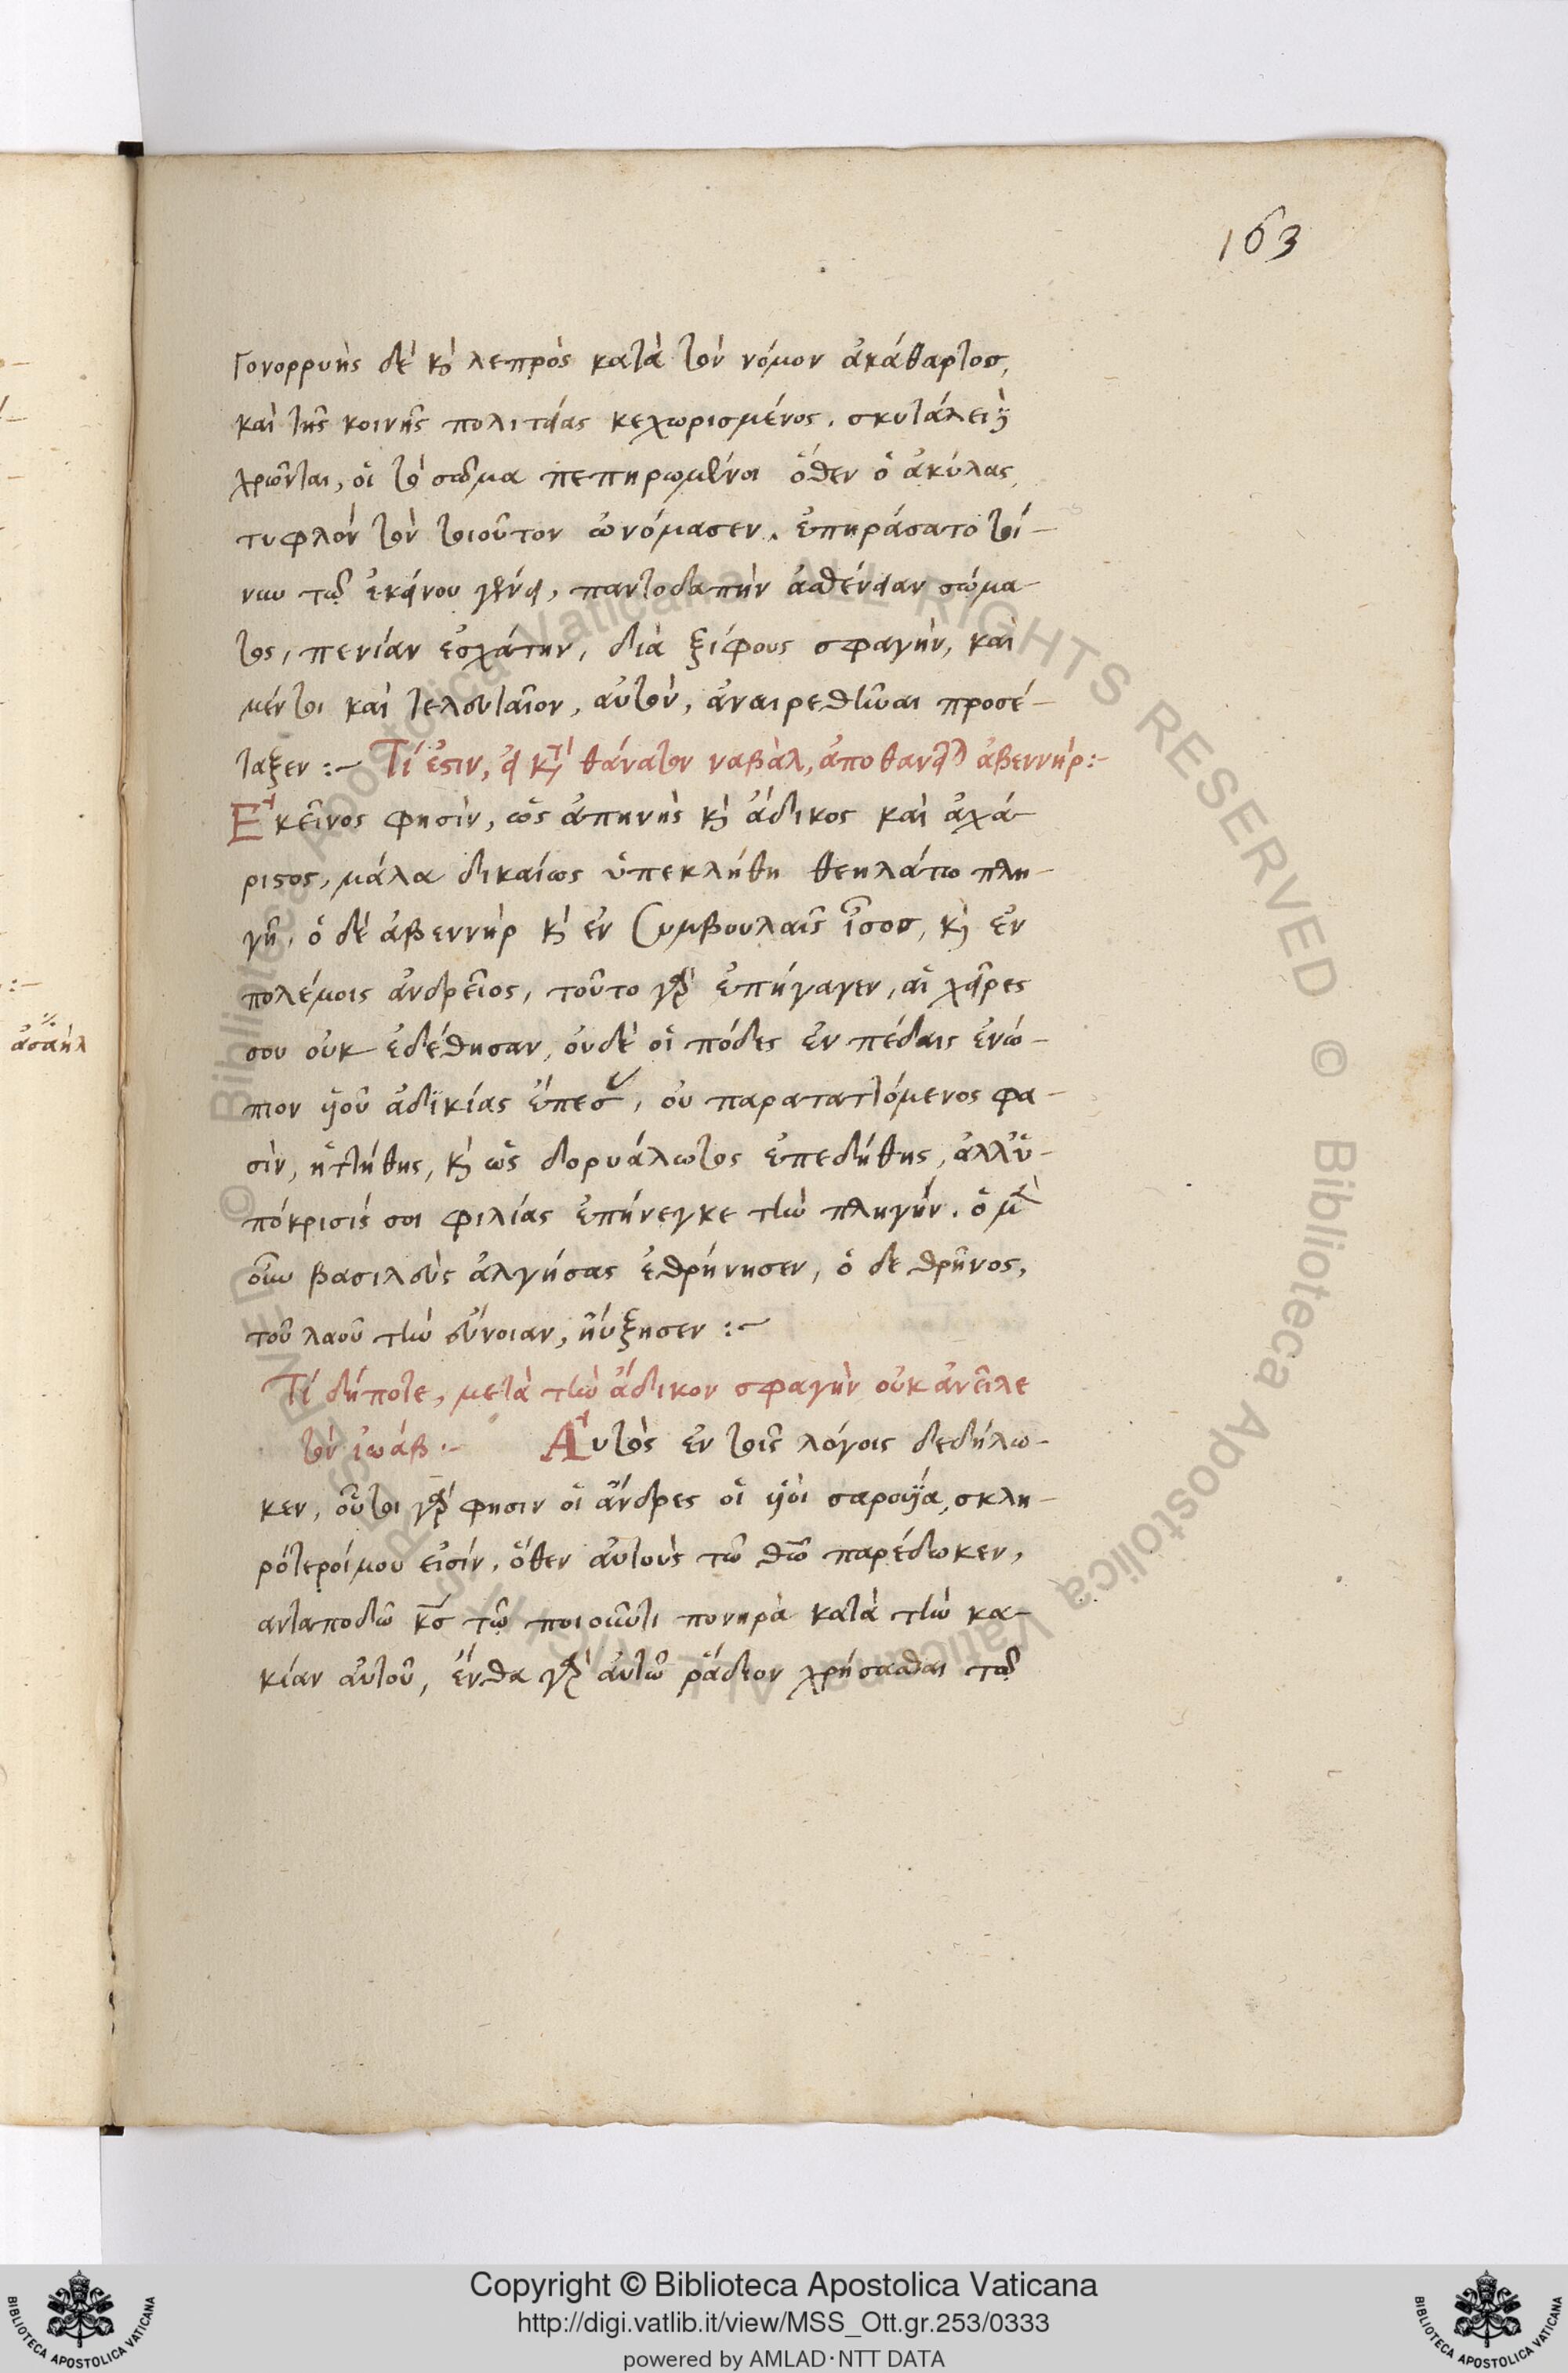 163
Γονορρυὴς δὲ κὶ λεπρὸς κατὰ τὸν νόμον ἀκάθαρτοσ,
καὶ τῆς κοινῆς πολιτείας κεχωρισμένος. σκυτάλῃ
χρῶνται, οἱ τὸ σῶμα πεπηρωμένοι ὅθεν ὁ ἀκύλας
τυφλὸν τὸν τοιοῦτον ὠνόμασεν. ἐπηράσατο τοί-
νυν τῶ ἐκείνου γένει, παντοδαπὴν ἀσθένειαν σώμα-
τος, πενίαν ἐσχάτην, διὰ ξίφους σφαγὴν, καὶ
μέντοι καὶ τελευταῖον, αὐτὸν, ἀναιρεθῆναι προσέ-
ταξεν :~ Τί ἐστιν, εἰ κτ θάνατον ναβὰλ, ἀποθανεῖται ἀβεννὴρ:-
Ἐκεῖνος φησὶν, ὡς ἀπηνὴς κὶ ἄδικος καὶ ἀχά-
ριστος, μάλα δικαίως ὑπεκλήθη θεηλάτω πλη-
γῆ, ὁ δὲ ἀβεννὴρ κὶ ἐν συμβουλαῖς ἴσοσ, κὶ ἐν
πολέμοις ἀνδρεῖος, τοῦτο γὰρ ἐπήγαγεν, αἱ χεῖρες
σου οὐκ ἐδέθησαν, οὐδὲ οἱ πόδες ἐν πέδαις ἐνώ-
πιον ὑοῦ ἀδικίας ἔπεσ, οὐ παρατατλόμενος φα-
σὶν, ἡττήθης, κὶ ὡς δορυάλωτος ἐπεδήθης, ἀλλ᾽ὑ-
πόκρισίς σοι φιλίας ἐπήνεγκε τὴν πληγήν. ὁ μὲν
οὖν βασιλεὺς ἀλγήσας ἐθρήνησεν, ὁ δε θρῆνος,
τοῦ λαοῦ τὴν εὔνοιαν, ηὔξησεν :~
Τί δήποτε, μετὰ τὴν ἄδικον σφαγὴν οὐκ ἀνεῖλε
τὸν ἰωάβ .~ Αὐτὸς ἐν τοῖς λόγοις δεδήλω-
κεν, οὗτοι γὰρ φησιν οἱ ἄνδρες οἱ ὑοὶ σαρουΐα, σκλη-
ρότεροίμου εἰσίν. ὅθεν αὐτοὺς τῶ θῶ παρέδωκεν,
ανταποδῶ κσ τῶ ποιοῦντι πονηρὰ κατὰ τὴν κα-
κίαν αὐτοῦ, ἔνθα γὰρ αὐτῶ ῥάδιον χρήσασθαι τῶ
ἀσαὴλ
© Biblioteca Apostolica Vaticana ALL RIGHTS RESERVED
Copyright © Biblioteca Apostolica Vaticana
http://digi.vatlib.it/view/MSS_Ott.gr.253/0333
powered by AMLAD·NTT DATA
BIBLIOTECA APOSTOLICA VATICANA
BIBLIOTECA APOSTOLICA VATICANA